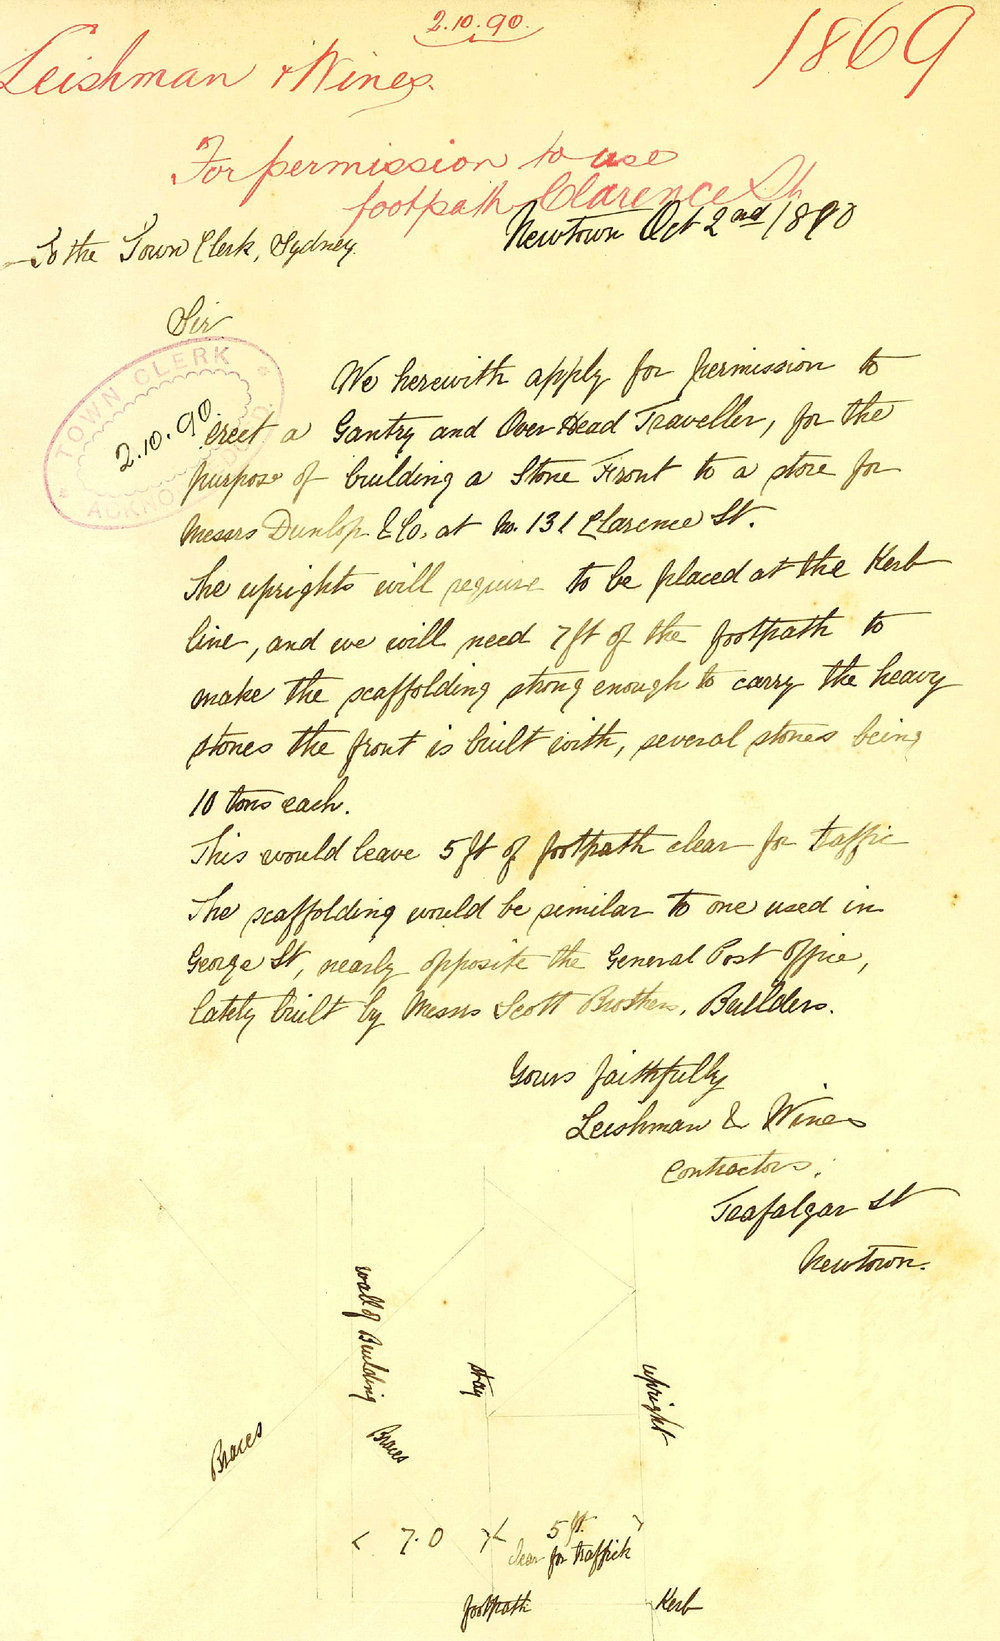 2.10.90.
1869
Leishman & Wines.
For permission to use
footpath Clarence St.
Newtown Oct 2nd 1890
To the Town Clerk, Sydney.
Sir
TOWN CLERK
2.10.90
ACKNOWLEDGED.
We herewith apply for permission to
erect a Gantry and Over Head Traveller, for the
purpose of building a Stone Front to a store for
Messrs Dunlop & Co. at No. 131 Clarence St.
The uprights will require to be placed at the Kerb
line, and we will need 7 ft of the footpath to
make the scaffolding strong enough to carry the heavy
stones the front is built with, several stones being
10 tons each.
This would leave 5 ft of footpath clear for taffic
The scaffolding would be similar to one used in
George St, nearly opposite the General Post Office,
lately built by Messrs Scott Brothers, Buillders.
Yours faithfully
Leishman & Wines
Contractors.
Trafalgar St
Newtown.
wall of Building
stay
upright
Braces
Braces
7.0
5 ft.
clear for traffick
footpath
Kerb